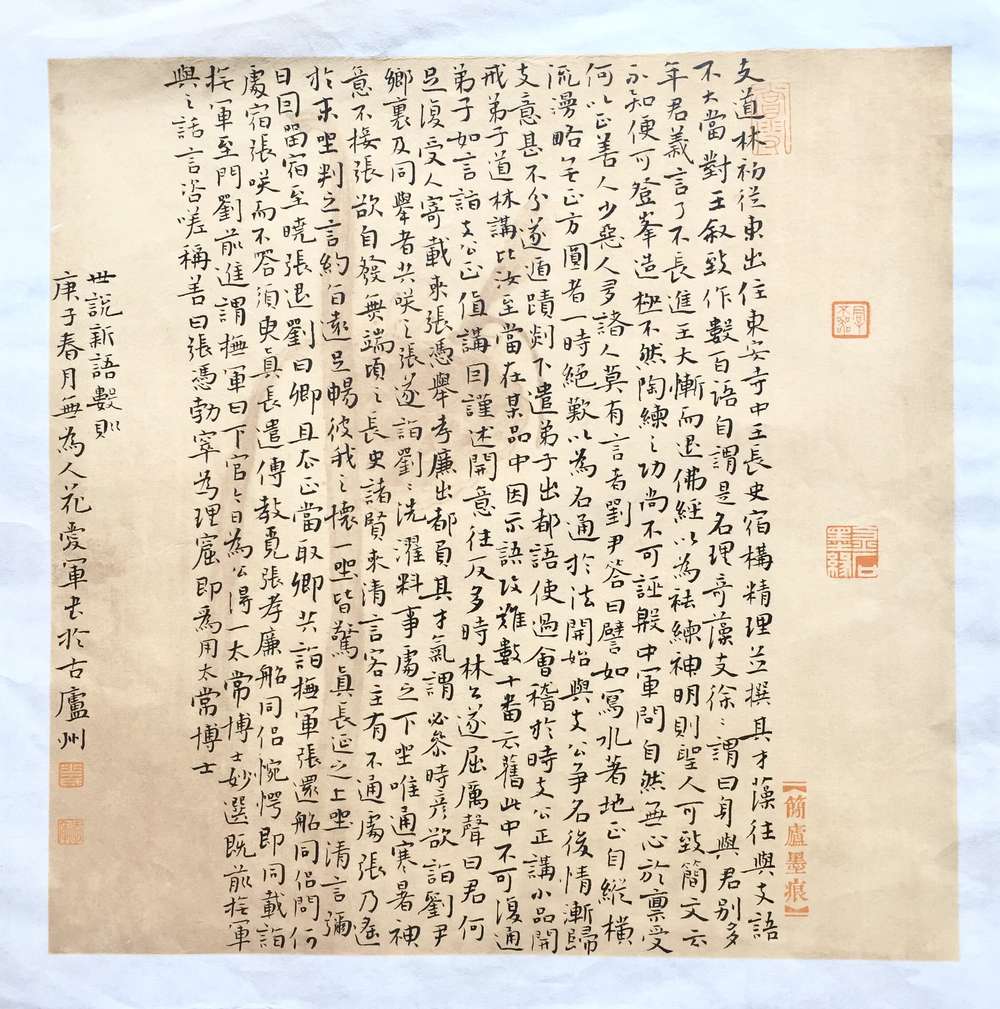 支道林初從東出住東安寺中王長史宿構精理並撰其才藻往與支語
不大當對王敘致作數百語自謂是名理奇藻支徐〻謂曰身與君別多
年君義言了不長進王大慚而退佛經以為祛練神明則聖人可致簡文云
不知便可登峯造極不然陶練之功尚不可誣殷中軍問自然無心於稟受
何以正善人少惡人多諸人莫有言者劉尹答曰譬如寫水著地正自縱橫
流漫略無正方圓者一時絕歎以為名通於法開始與支公爭名後情漸歸
支意甚不分遂遁蹟剡下遣弟子出都語使過會稽於時支公正講小品開
戒弟子道林講比汝至當在某品中因示語攻難數十番云舊此中不可復通
弟子如言詣支公正值講因謹述開意往反多時林公遂屈厲聲曰君何
足復受人寄載來張憑舉孝廉出都負其才氣謂必參時彥欲詣劉尹
鄉裏及同舉者共咲之張遂詣劉〻洗濯料事處之下坐唯通寒暑神
意不接張欲自發無端頃之長史諸賢來清言客主有不通處張乃遙
於末坐判之言約旨遠足暢彼我之懷一坐皆驚真長延之上坐清言彌
日因留宿至曉張退劉曰卿且去正當取卿共詣撫軍張還船同侶問何
處宿張咲而不答須臾真長遣傳教覓張孝廉船同侶惋愕即同載詣
撫軍至門劉前進謂撫軍曰下官今日為公得一太常博士妙選既前撫軍
與之話言咨嗟稱善曰張憑勃窣為理窟即為用太常博士
世說新語數則
庚子春月無為人花愛軍書於古廬州
【簡廬墨痕】